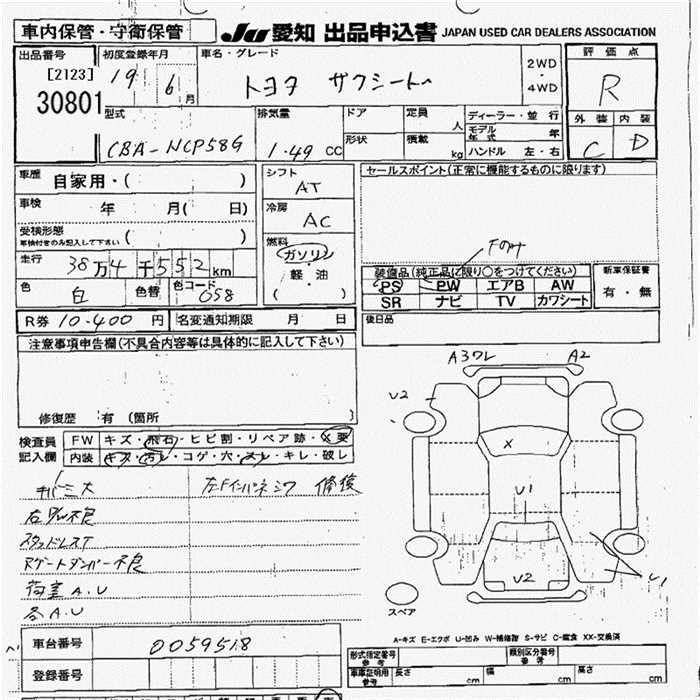 車内保管・守衛保管 JU愛知 出品申込書 JAPAN USED CAR DEALERS ASSOCIATION
出品番号 初度登録年月 車名・グレード 2WD・4WD 評価点
[2123] 30801 19 6月 R
型式 排気量 ドア 定員 人 ディーラー・並行 外装 内装
CBA-NCP58G 1.49 CC 形状 積載 kg モデル年式 年 ハンドル 左・右 C D
車歴 自家用・( ) シフト AT セールスポイント(正常に機能するものに限ります)
車検 年 月( 日) 冷房 AC
受検形態 車検付きのみ記入して下さい ( ) 燃料 ガソリン・軽・油 ( )
走行 38万4千552km
装備品(純正品に限り○をつけてください) 新車保証書
色 白 色替 色コード 058 PS PW エアB AW 有・無
SR ナビ TV カワシート
R券 10,400 円 名変通知期限 月 日 後日品
注意事項申告欄(不具合内容等は具体的に記入して下さい)
A3ワレ A2
U2
修復歴 有 (箇所 )
検査員記入欄 FW キズ・飛石・ヒビ割・リペア跡・X要
内装 キズ・汚レ・コゲ・穴・スレ・キレ・破レ
X
U1
スタッドレスT
Rゲートダンパー不良
荷室A.U
各A.U
U2 U1
スペア
A-キズ E-エクボ U-凹み W-補修跡 S-サビ C-腐食 XX-交換済
車台番号 0059518 形式指定番号 参考 類別区分番号 参考
登録番号 車庫証明用 参考 長さ cm 幅 cm 高さ cm